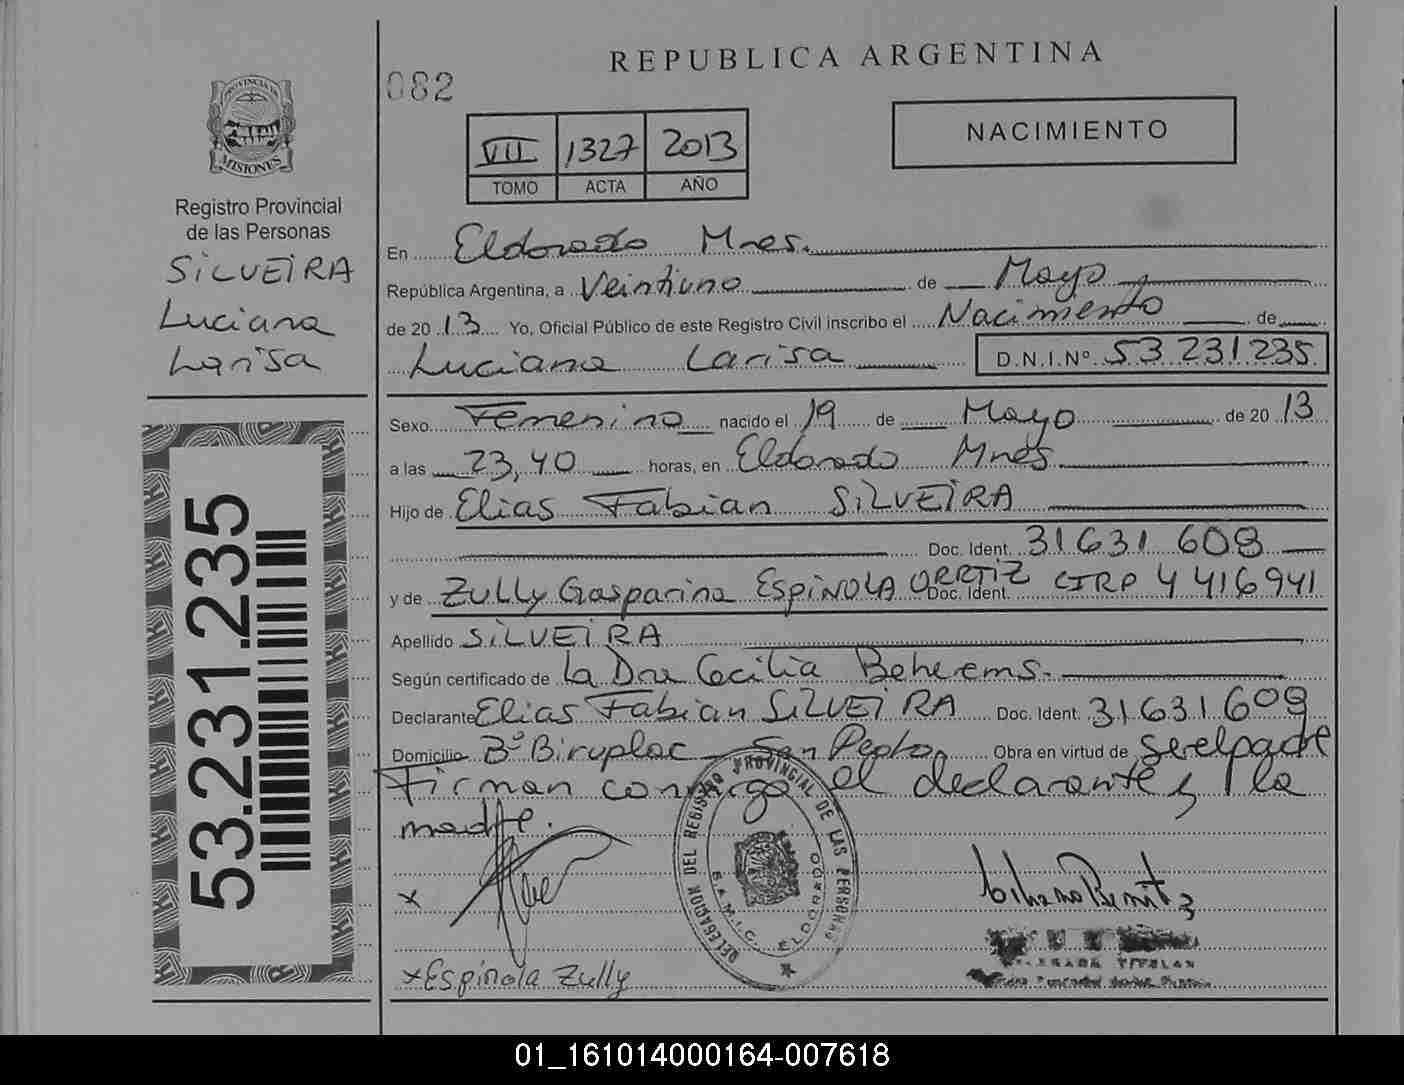 REPUBLICA ARGENTINA
082
PROVINCIA DE
MISIONES
Registro Provincial
de las Personas
SILVEIRA
Luciana
Larisa
53.231.235
VII 1327 2013
TOMO ACTA AÑO
NACIMIENTO
En Eldorado Mnes.
República Argentina, a Veintiuno de Mayo
de 2013 Yo, Oficial Público de este Registro Civil inscribo el Nacimiento de
Luciana Larisa D.N.I.Nº 53.231.235
Sexo Femenino nacido el 19 de Mayo de 2013
a las 23,40 horas, en Eldorado Mnes
Hijo de Elias Fabian SILVEIRA
Doc. Ident. 31631 608
y de Zully Gasparina ESPINOLA ORRTIZ Doc. Ident. CIRP 4 416941
Apellido SILVEIRA
Según certificado de la Dra Cecilia Beherems.
Declarante Elias Fabian SILVEIRA Doc. Ident. 31631608
Domicilio Bº Biruplac San Pedro Obra en virtud de Ser el padre
Firman conmigo el declarante y la
madre.
DELEGACION DEL REGISTRO PROVINCIAL DE LAS PERSONAS
S.A.M.I.C. ELDORADO
x
x Espinola Zully
TITULAR
01_161014000164-007618